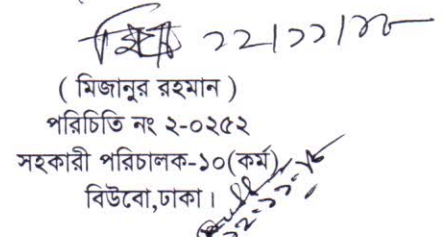 ২২/১১/১৮
( মিজানুর রহমান )
পরিচিতি নং ২-০২৫২
সহকারী পরিচালক-১০(কর্ম)
বিউবো,ঢাকা।